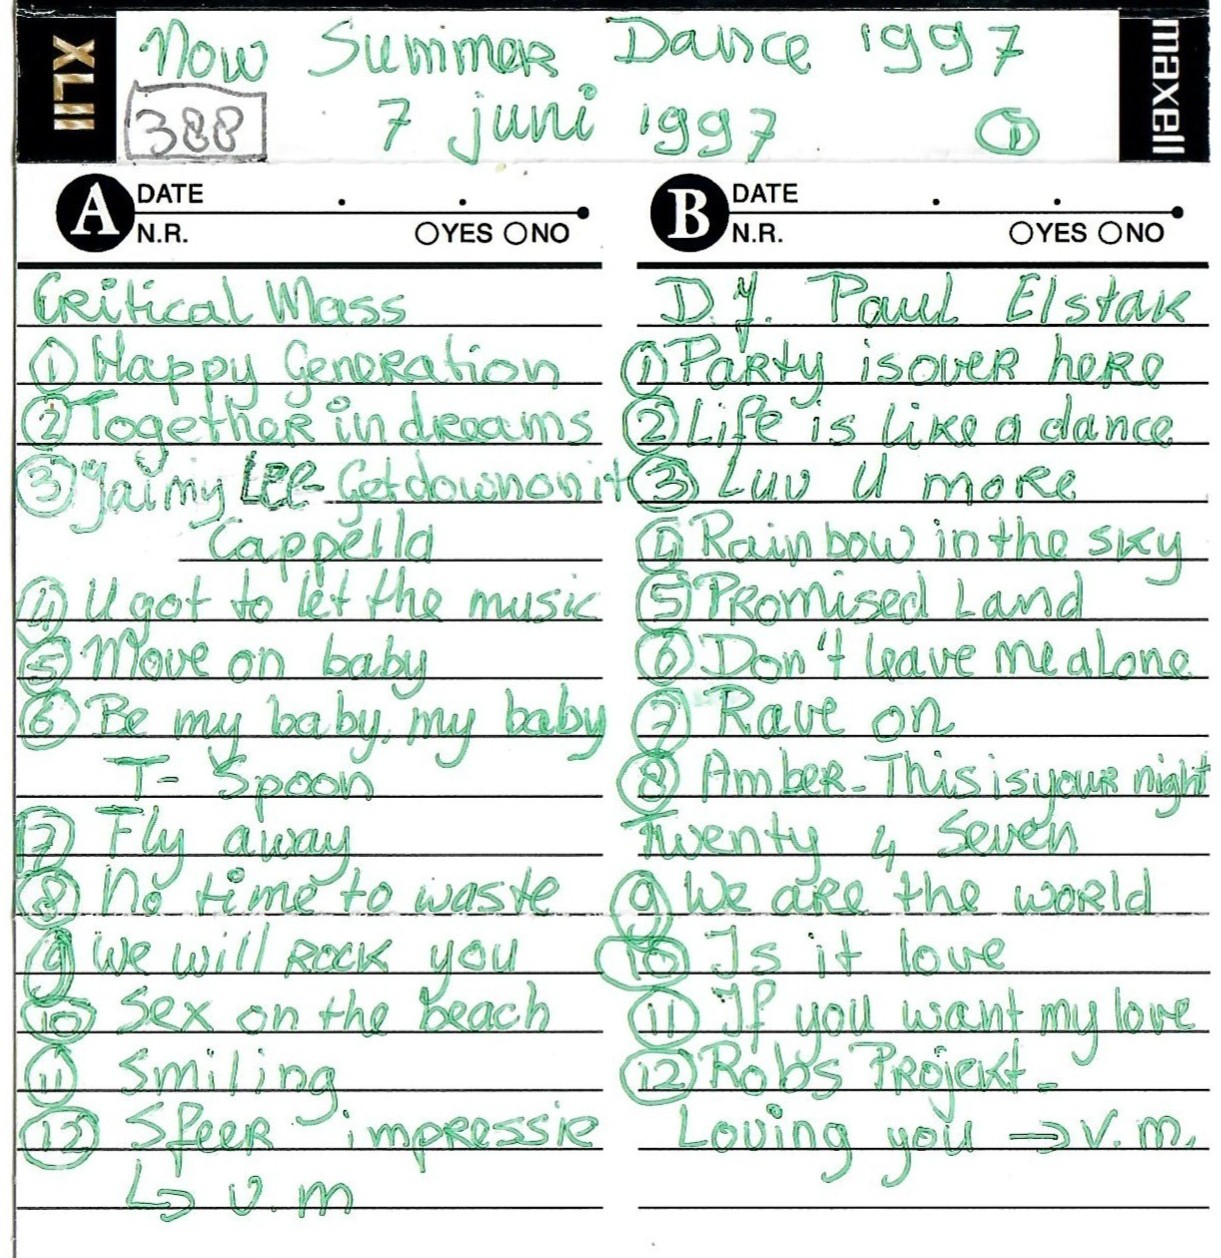 XLII
Now Summer Dance 1997
388 7 juni 1997 1
maxell
A DATE
N.R. YES NO
Critical Mass
1 Happy Generation
2 Together in dreams
3 Jaimy Lee - Get down on it
Cappella
4 U got to let the music
5 Move on baby
6 Be my baby, my baby
T- Spoon
7 Fly away
8 No time to waste
9 We will rock you
10 Sex on the beach
11 Smiling
12 Sfeer impressie
↳ v.m
B DATE
N.R. YES NO
D.J. Paul Elstak
1 Party is over here
2 Life is like a dance
3 Luv U more
4 Rainbow in the sky
5 Promised Land
6 Don't leave me alone
7 Rave on
8 Amber - This is your night
Twenty 4 Seven
9 We are the world
10 Is it love
11 If you want my love
12 Rob's Projekt -
Loving you → v.m.